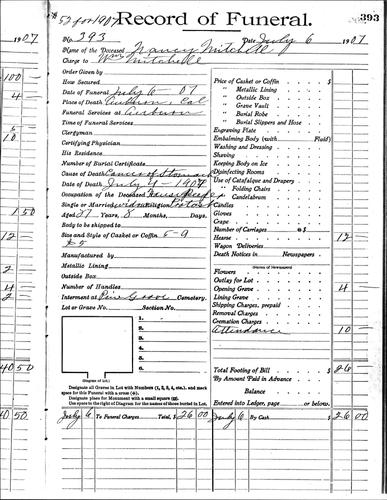 52 for 1907
Record of Funeral.
393
1907
No. 393
Date July 6 1907
Name of the Deceased Nancy Mitchell
Charge to Wm Mitchell
Order Given by
How Secured
Date of Funeral July 6 - 07
Place of Death Auburn, Cal
Funeral Services at Auburn
Time of Funeral Services
Clergyman
Certifying Physician
His Residence
Number of Burial Certificate
Cause of Death Cancer of Stomach
Date of Death July 4 - 1907
Occupation of the Deceased
Single or Married widow Religion
Aged 27 Years, 8 Months, Days.
Body to be shipped to
Size and Style of Casket or Coffin 5-9
Manufactured by
Metallic Lining
Outside Box
Number of Handles
Interment at Pine Grove Cemetery.
Lot or Grave No. Section No.
1.
2.
3.
4.
5.
6.
(Diagram of Lot.)
Designate all Graves in Lot with Numbers (1, 2, 3, 4, etc.), and mark
space for this Funeral with a cross (+).
Designate place for Monument with a small square (□).
Use space in right of Diagram for the names of those buried in Lot.
July 6 To Funeral Charges Total, $ 26 00
Price of Casket or Coffin $
" Metallic Lining
" Outside Box
" Grave Vault
" Burial Robe
" Burial Slippers and Hose
Engraving Plate
Embalming Body (with Fluid)
Washing and Dressing
Shaving
Keeping Body on Ice
Disinfecting Rooms
Use of Catafalque and Drapery
" Folding Chairs
" Candelabrum
Candles
Gloves
Crape
Number of Carriages @ $
Hearse 12
Wagon Deliveries
Death Notices in Newspapers
(Names of Newspapers)
Flowers
Outlay for Lot
Opening Grave 4
Lining Grave
Shipping Charges, prepaid
Removal Charges
Cremation Charges
Attendance 10
Total Footing of Bill $ 26
By Amount Paid in Advance
Balance
Entered into Ledger, page or below.
July 6 By Cash $ 26 00
100
4
6
10
1 50
12
2
4
2
40 50
40 50